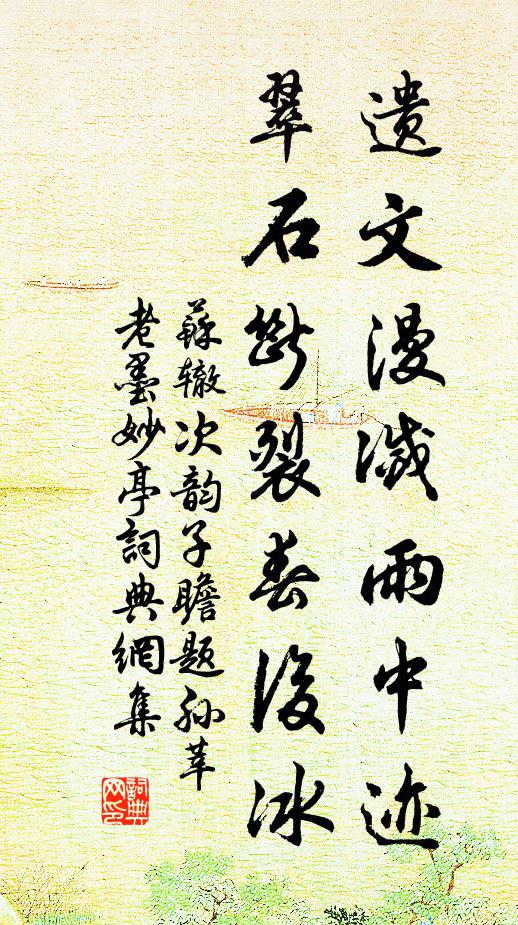 遗文漫灭雨中迹
翠石断裂春后冰
蘇辙次韵子瞻题孙莘
老墨妙亭詞典網集
詞典
网印